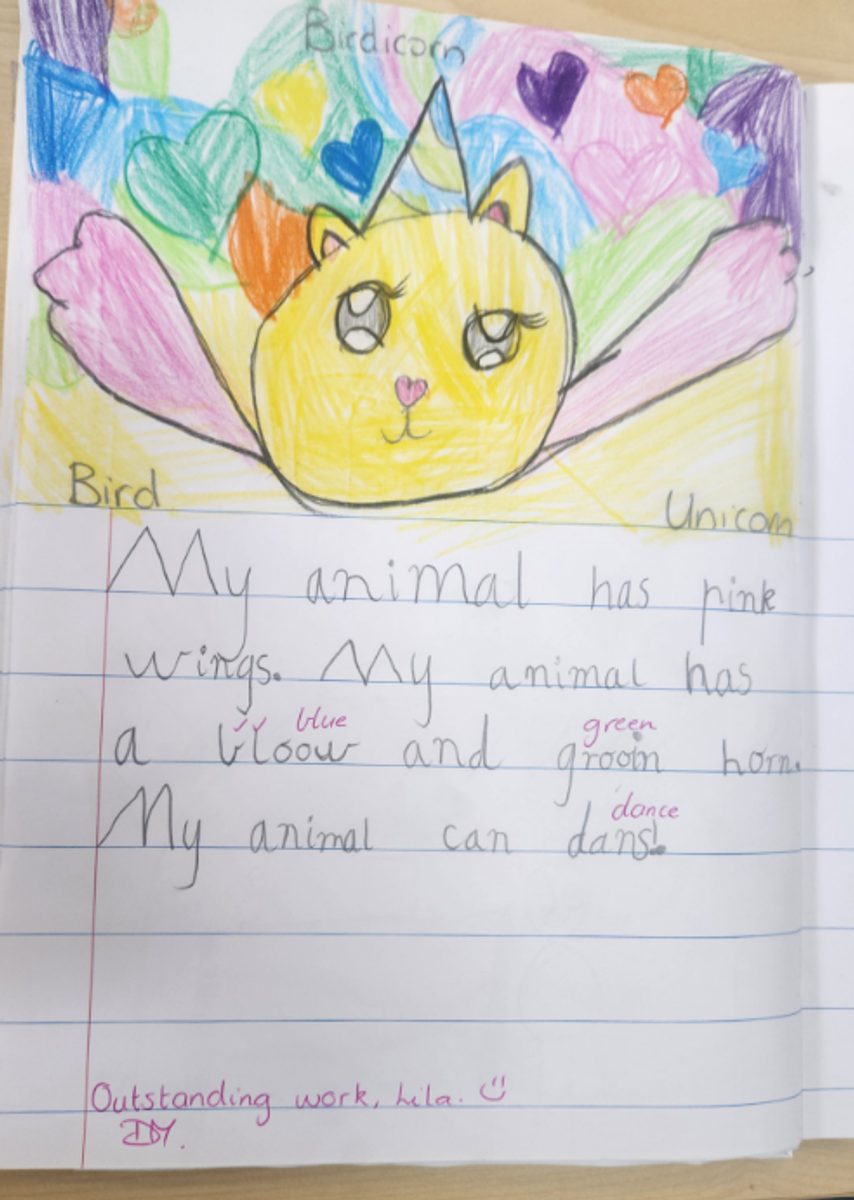 Birdicorn
Bird
Unicorn
My animal has pink
wings. My animal has
blue green
a bloow and grooin horn.
dance
My animal can dans!
Outstanding work, Lila.